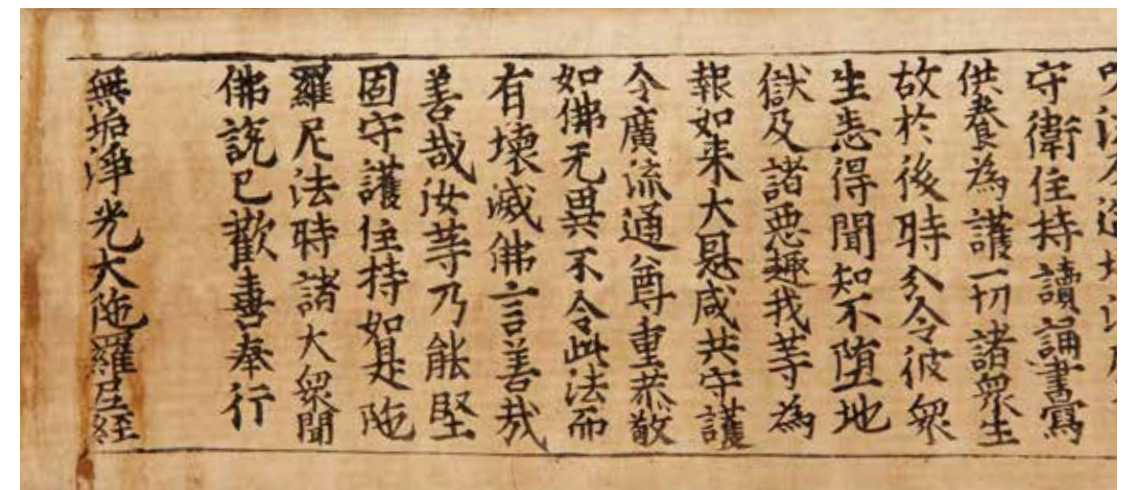 守衛住持讀誦書寫
供養為護一切諸衆生
故於後時分令彼衆
生悉得聞知不墮地
獄及諸惡趣我等為
報如来大恩咸共守護
令廣流通尊重恭敬
如佛无異不令此法而
有壞滅佛言善哉
善哉汝等乃能堅
固守護住持如是陁
羅尼法時諸大衆聞
佛說已歡喜奉行
無垢淨光大陁羅尼経